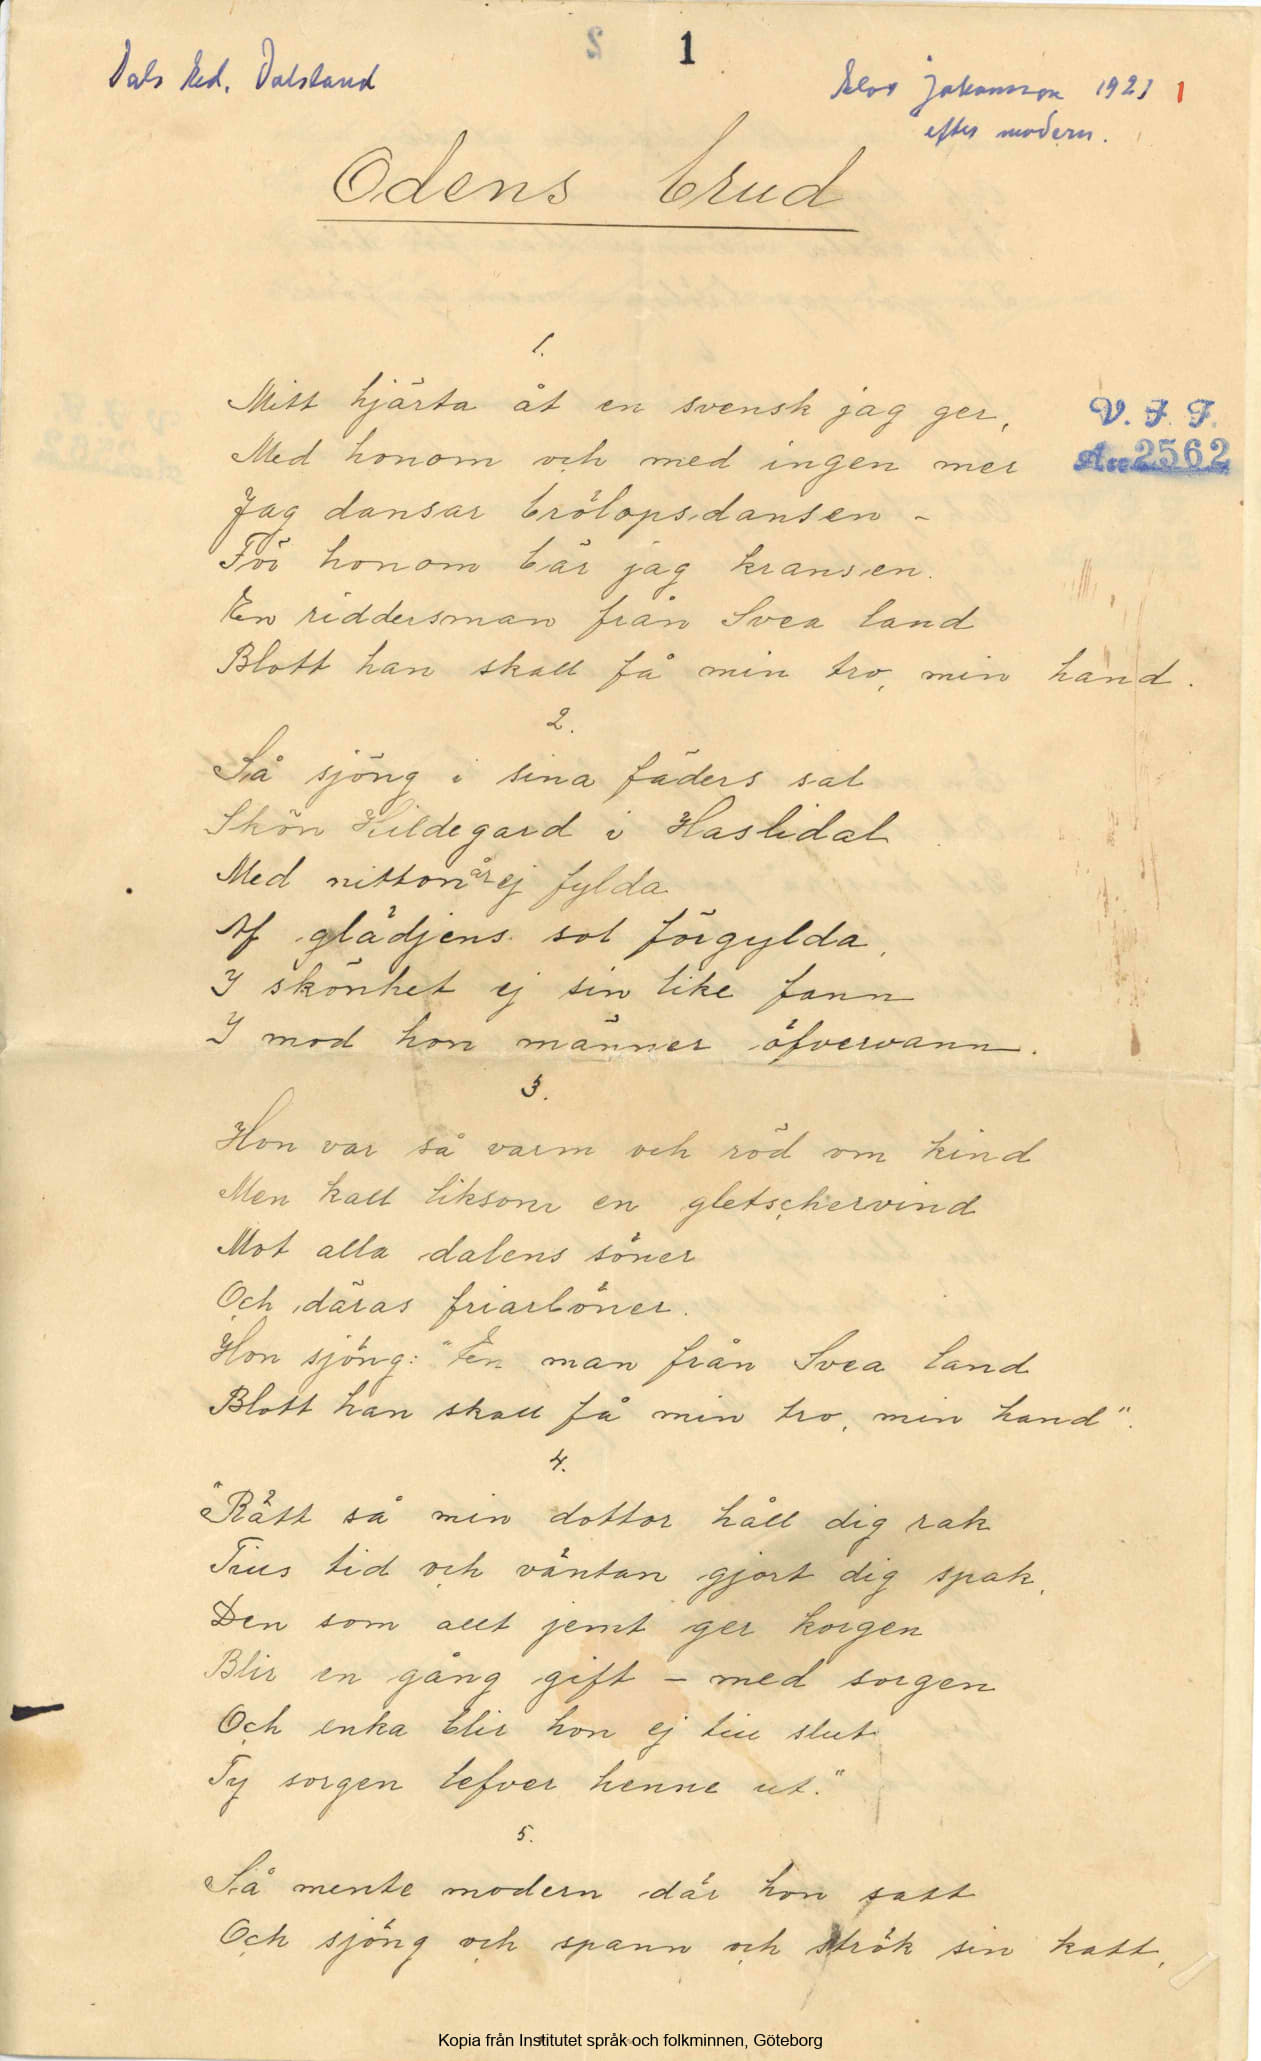 1
Dals Ed. Dalsland
Johansson 1921 1
efter modern.
Odens brud
V. F. F.
Acc 2562
1.
Mitt hjärta åt en svensk jag ger,
Med honom och med ingen mer
Jag dansar brölopsdansen –
För honom bär jag kransen.
En riddersman från Svea land
Blott han skall få min tro, min hand.
2.
Så sjöng i sina fäders sal
Skön Hildegard i Haslidal
Med nitton år ej fylda
Af glädjens sol förgylda,
I skönhet ej sin like fann
I mod hon männer öfvervann.
3.
Hon var så varm och röd om kind
Men kall liksom en gletschervind
Mot alla dalens söner
Och däras friarböner.
Hon sjöng: "En man från Svea land
Blott han skall få min tro, min hand".
4.
"Rätt så min dottor håll dig rak
Tius tid och väntan gjort dig spak,
Den som allt jemt ger korgen
Blir en gång gift – med sorgen
Och enka blir hon ej till slut
Ty sorgen lefver henne ut."
5.
Så mente modern där hon satt
Och sjöng och spann och strök sin katt,
Kopia från Institutet språk och folkminnen, Göteborg